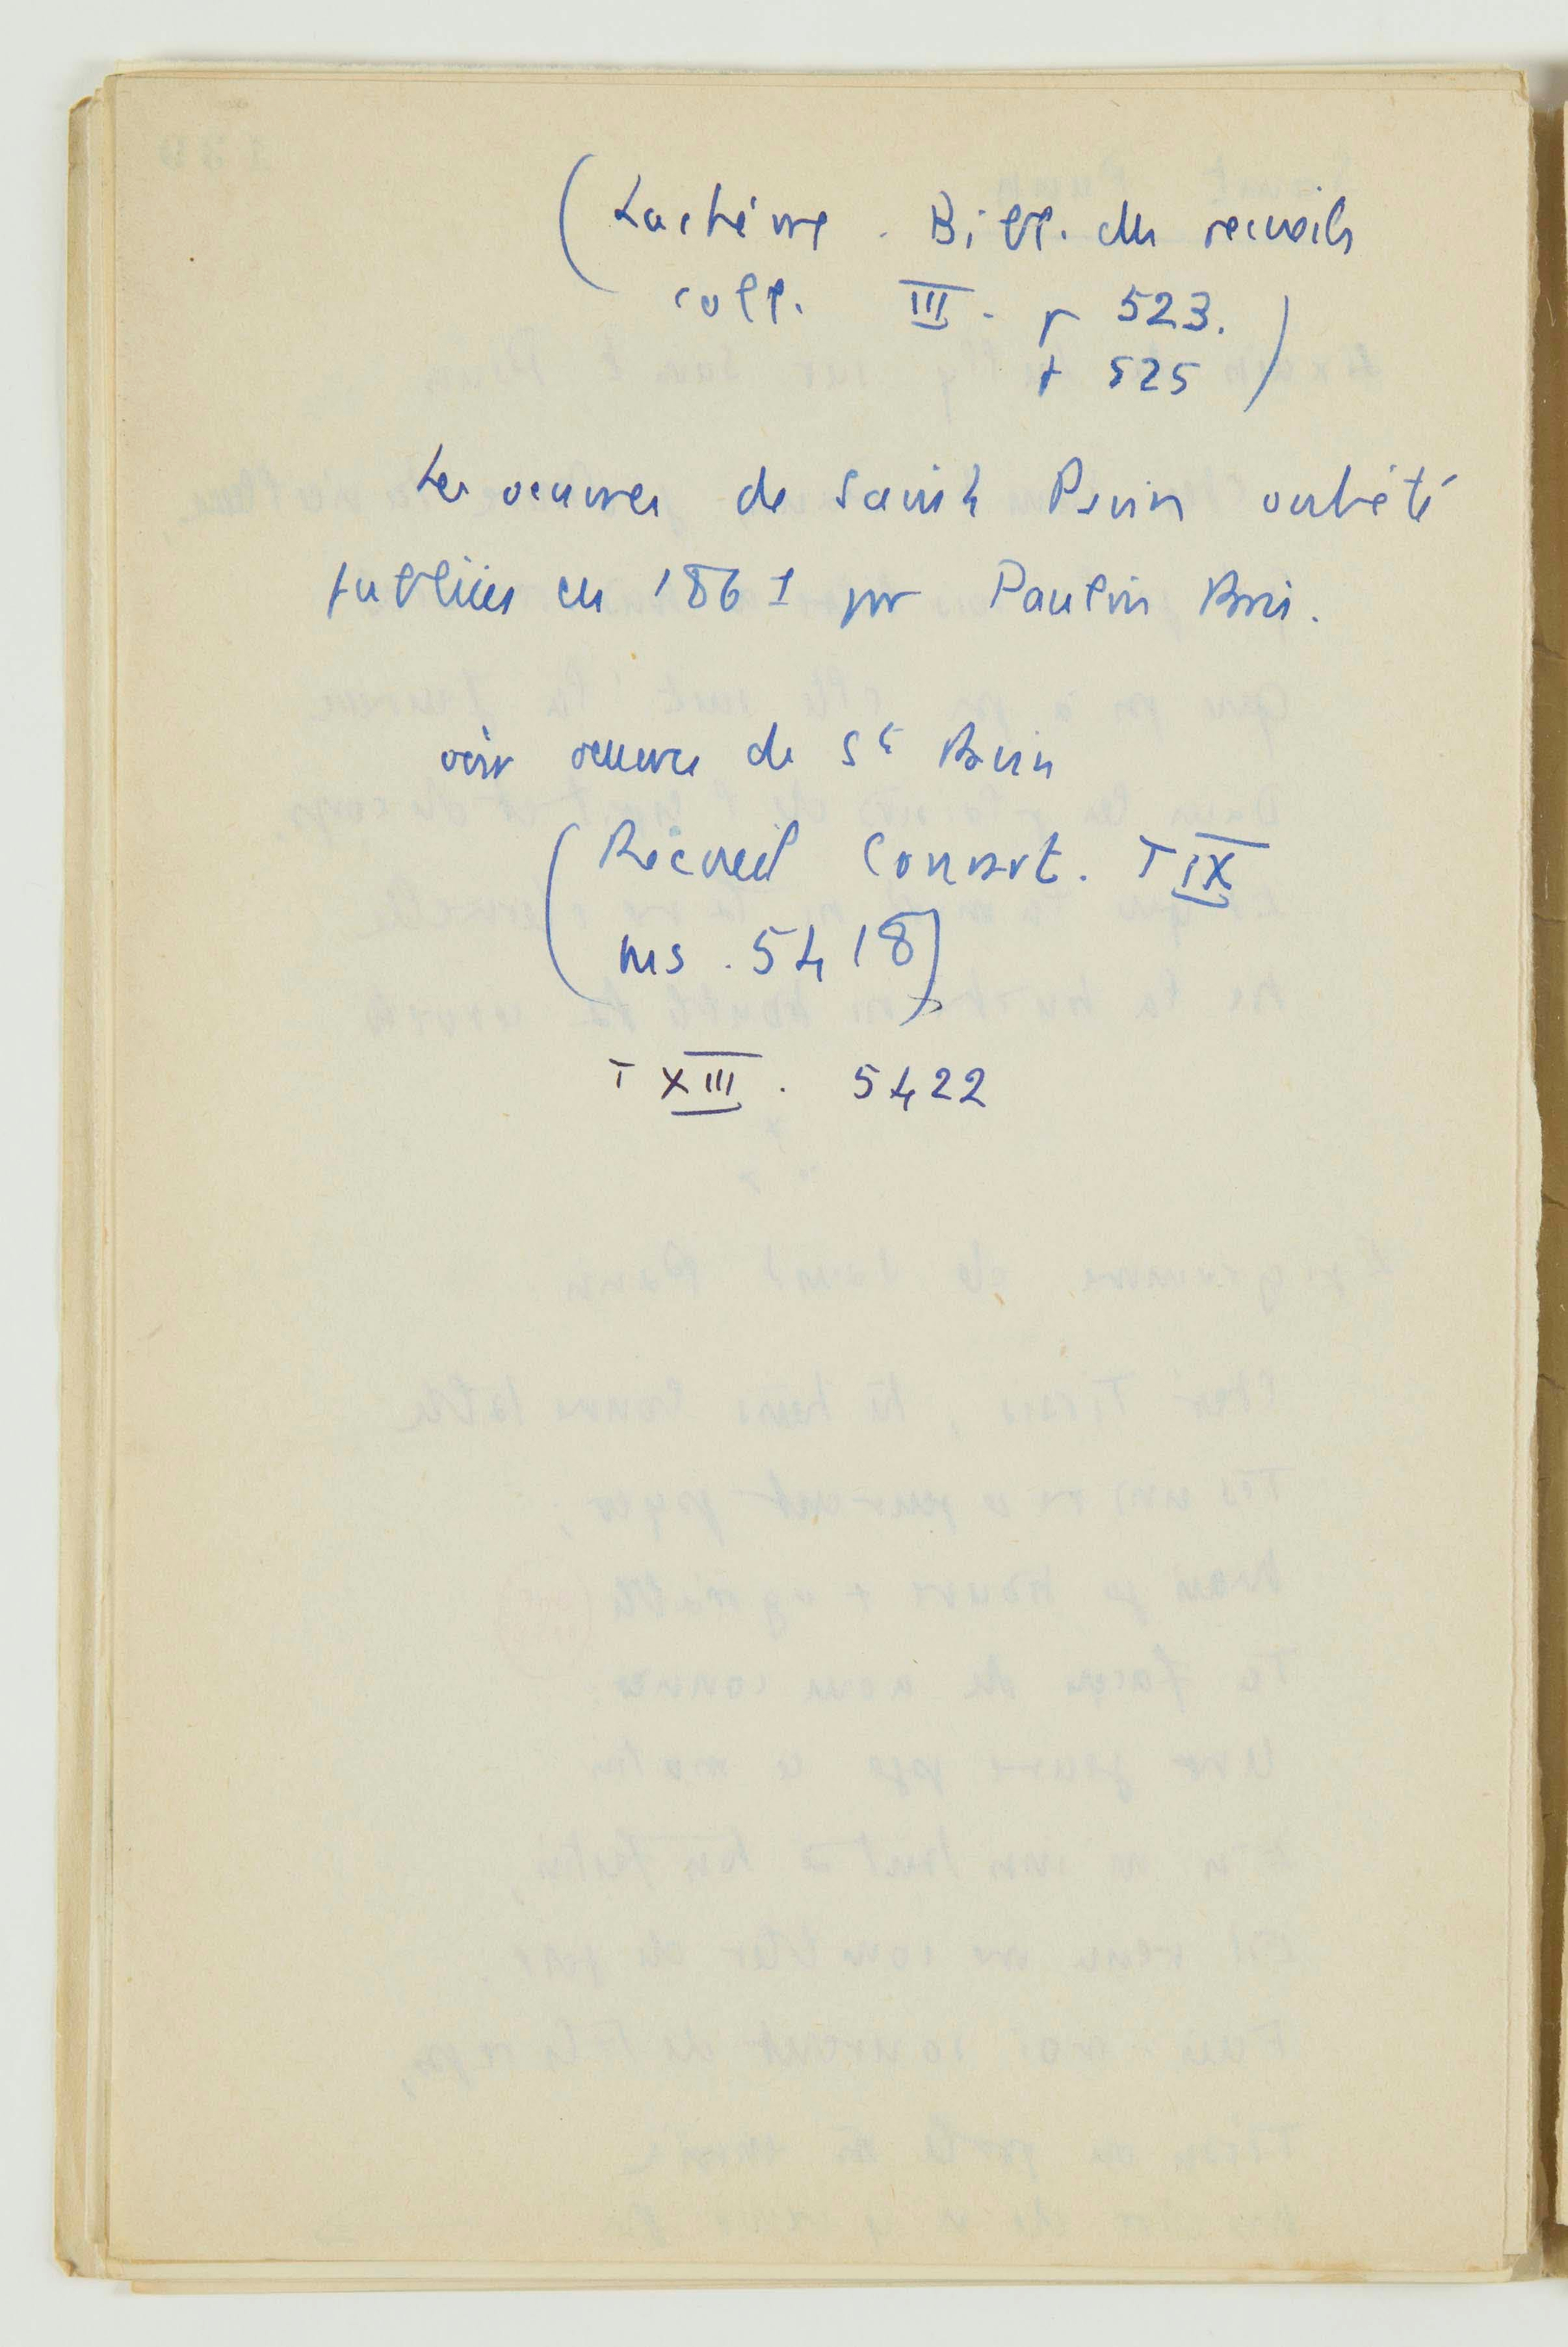 (Lachèvre. Bibl. des recueils
coll. III. p 523.
+ 525)
Les oeuvres de Saint Pavin ont été
publiées en 1861 par Paulin Paris.
voir oeuvres de St Pavin
(Recueil Conrart. T IX
ms. 5418)
T XIII. 5422